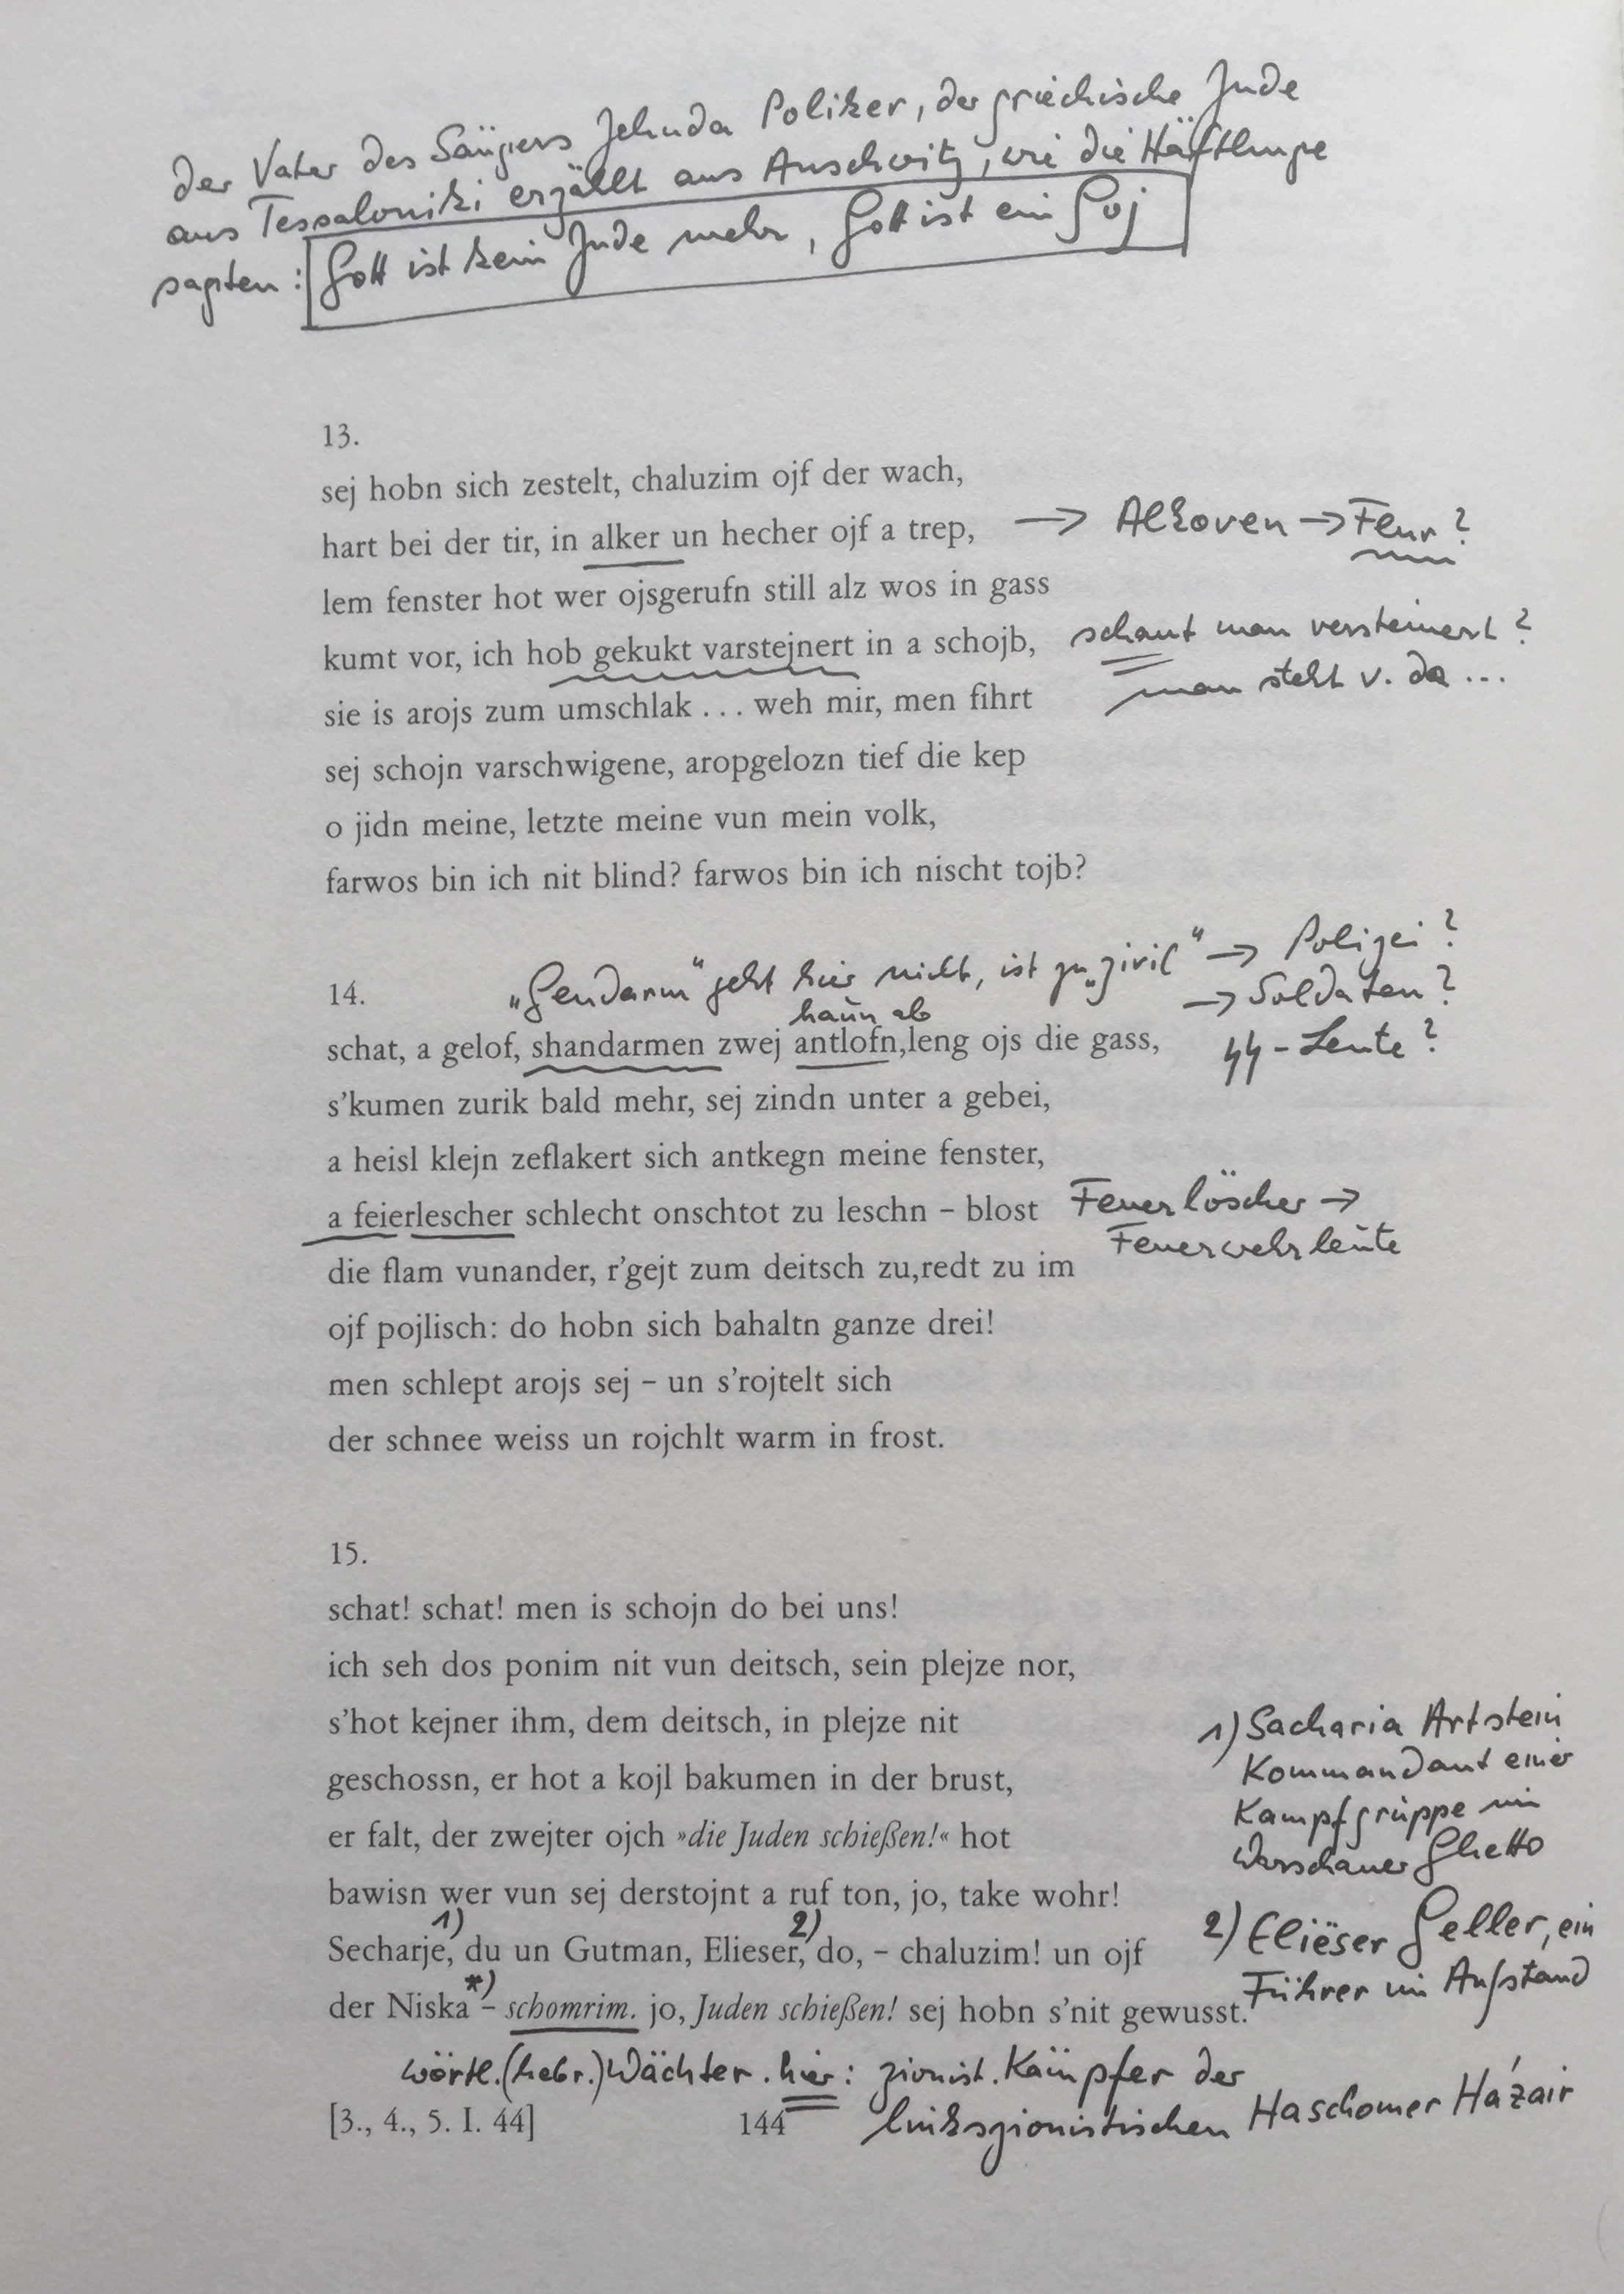 der Vater des Sängers Jehuda Poliker, der griechische Jude
aus Tessaloniki erzählt aus Auschwitz, wie die Häftlinge
sagten: Gott ist kein Jude mehr, Gott ist ein Goj
13.
sej hobn sich zestelt, chaluzim ojf der wach,
hart bei der tir, in alker un hecher ojf a trep, → Alkoven → Flur?
lem fenster hot wer ojsgerufn still alz wos in gass
kumt vor, ich hob gekukt varstejnert in a schojb, schaut man versteinert?
man steht v. da ...
sie is arojs zum umschlak . . . weh mir, men fihrt
sej schojn varschwigene, aropgelozn tief die kep
o jidn meine, letzte meine vun mein volk,
farwos bin ich nit blind? farwos bin ich nischt tojb?
14. „Gendarm“ geht hier nicht, ist zu „zivil“ → Polizei?
→ Soldaten?
haun ab
schat, a gelof, shandarmen zwej antlofn,leng ojs die gass, ϟϟ-Leute?
s’kumen zurik bald mehr, sej zindn unter a gebei,
a heisl klejn zeflakert sich antkegn meine fenster,
a feierlescher schlecht onschtot zu leschn – blost Feuerlöscher →
Feuerwehrleute
die flam vunander, r’gejt zum deitsch zu,redt zu im
ojf pojlisch: do hobn sich bahaltn ganze drei!
men schlept arojs sej – un s’rojtelt sich
der schnee weiss un rojchlt warm in frost.
15.
schat! schat! men is schojn do bei uns!
ich seh dos ponim nit vun deitsch, sein plejze nor,
s’hot kejner ihm, dem deitsch, in plejze nit
geschossn, er hot a kojl bakumen in der brust,
er falt, der zwejter ojch »die Juden schießen!« hot
bawisn wer vun sej derstojnt a ruf ton, jo, take wohr!
Secharje,¹⁾ du un Gutman, Elieser,²⁾ do, – chaluzim! un ojf
der Niska*⁾ – schomrim. jo, Juden schießen! sej hobn s’nit gewusst.
1) Sacharia Artstein
Kommandant einer
Kampfgruppe im
Warschauer Ghetto
2) Eliëser Geller, ein
Führer im Aufstand
wörtl. (hebr.) Wächter. hier: zionist. Kämpfer der
linkszionistischen Haschomer Házair
[3., 4., 5. I. 44] 144